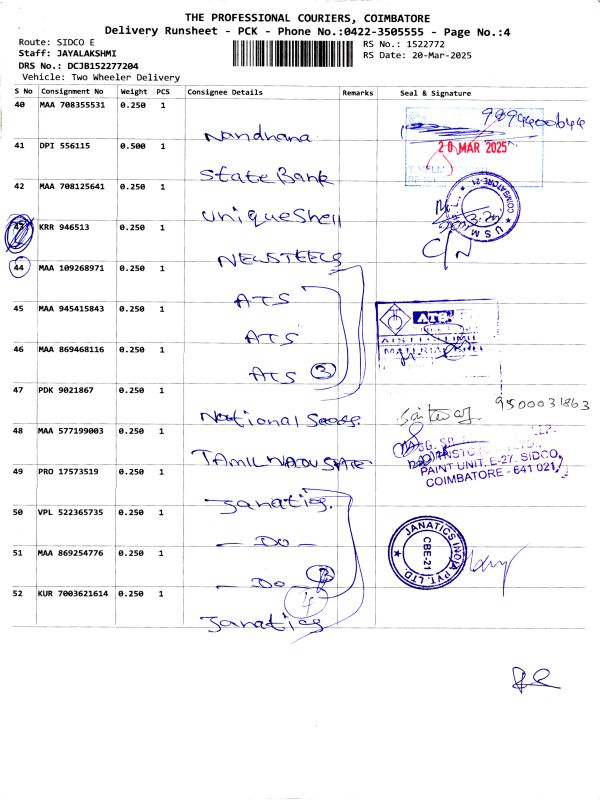 THE PROFESSIONAL COURIERS, COIMBATORE
Delivery Runsheet - PCK - Phone No.:0422-3505555 - Page No.:4
Route: SIDCO E
RS No.: 1522772
Staff: JAYALAKSHMI
RS Date: 20-Mar-2025
DRS No.: DCJB152277204
Vehicle: Two Wheeler Delivery
S No Consignment No Weight PCS Consignee Details Remarks Seal & Signature
40 MAA 708355531 0.250 1 Nandhana
20 MAR 2025
41 DPI 556115 0.500 1 State Bank
42 MAA 708125641 0.250 1 Unique Shell
COIMBATORE-21
43 KRR 946513 0.250 1 NEWSTEELS
C/N
44 MAA 109268971 0.250 1 ATS
45 MAA 945415843 0.250 1 ATS
46 MAA 869468116 0.250 1 ATS 3
47 PDK 9021867 0.250 1 National
9500031863
48 MAA 577199003 0.250 1 TAMIL NADU STATE
PAINT UNIT, E-27, SIDCO,
COIMBATORE - 641 021
49 PRO 17573519 0.250 1 Janatics.
50 VPL 522365735 0.250 1 - Do -
JANATICS INDIA PVT. LTD
CBE-21
51 MAA 869254776 0.250 1 - Do -
4
52 KUR 7003621614 0.250 1 Janatics